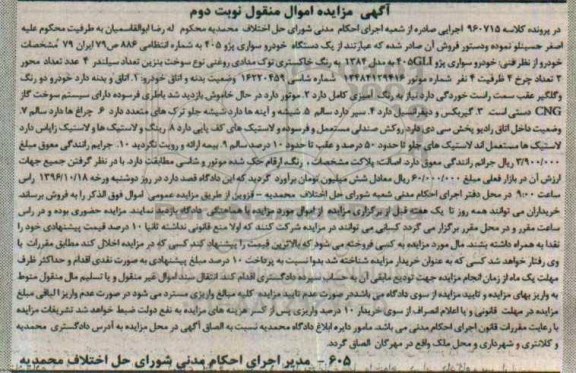 آگهی مزایده اموال منقول نوبت دوم
در پرونده کلاسه ۹۶۰۷۱۵ اجرایی صادره از شعبه اجرای احکام مدنی شورای حل اختلاف محمدیه محکوم له رضا ابوالقاسمیان به طرفیت محکوم علیه
اصغر حسینلو نموده ودستور فروش آن صادر شده که عبارتند از یک دستگاه خودرو سواری پژو ۴۰۵ به شماره انتظامی ۸۸۶ ص۷۹ ایران ۷۹ مشخصات
خودرو از نظر فنی: خودرو سواری پژو ۴۰۵GLI به مدل ۱۳۸۴ به رنگ خاکستری نوک مدادی روغنی نوع سوخت بنزین تعداد سیلندر ۴ عدد تعداد محور
۲ تعداد چرخ ۴ ظرفیت ۴ نفر شماره موتور ۱۲۴۸۴۱۲۹۴۱۶ شماره شاسی ۱۶۲۲۰۴۵۹ وضعیت بدنه و اتاق خودرو: ۱. اتاق و بدنه دارد خودرو دو رنگ
وگلگیر عقب سمت راست خوردگی دارد نیاز به رنگ آمیزی کامل دارد ۲. موتور دارد در حال خاموش بازدید شد باطری فرسوده دارای سیستم سوخت گاز
CNG دستی است. ۳. گیربکس و دیفرانسیل دارد ۴. سپر دارد سالم ۵. شیشه و آینه ها دارد شیشه جلو ترک های متعدد دارد ۶. چراغ ها دارد سالم ۷.
وضعیت داخل اتاق رادیو پخش سی دی دارد روکش صندلی مستعمل و فرسوده و لاستیک های کف پایی دارد ۸ رینگ و لاستیک ها و لاستیک زاپاس دارد
لاستیک ها مستعمل اند لاستیک های جلو تا حدود ۵۰ درصد و عقب تا حدود ۱۰ درصد سالم ۹. بیمه ارائه و رویت نگردید ۱۰. جرایم رانندگی معوق مبلغ
۳/۹۰۰/۰۰۰ ریال جرائم رانندگی معوق دارد. اصالت پلاکت مشخصات، رنگ، ارقام حک شده موتور و شاسی مطابقت دارد. با در نظر گرفتن جمیع جهات
ارزش آن در بازار فعلی مبلغ ۶۰/۰۰۰/۰۰۰ ریال معادل شش میلیون تومان برآورد گردید که این دادگاه قصد دارد در روز دوشنبه ورخه ۱۳۹۶/۱۰/۱۸ راس
ساعت ۹:۰۰ در محل دفتر اجرای احکام مدنی شعبه شورای حل اختلاف محمدیه – قزوین از طریق مزایده عمومی اموال فوق الذکر را به فروش برساند.
خریداران می توانند همه روز تا یک هفته قبل از برگزاری مزایده از اموال مورد مزایده با هماهنگی دادگاه بازدید نمایند. مزایده حضوری بوده و در راس
ساعت مقرر و در محل مقرر برگزار می گردد کسانی می توانند در مزایده شرکت کنند که اولا منع قانونی نداشته ثانیا ۱۰ درصد قیمت پیشنهادی خود را
نقدا به همراه داشته باشند. مال مورد مزایده به کسی فروخته می شود که بالاترین قیمت را پیشنهاد کند کسی که در مزایده اخلال کند مطابق مقررات با
وی رفتار خواهد شد کسی که به عنوان خریدار مزایده شناخته شد بدوا نسبت به پرداخت ۱۰ درصد مبلغ پیشنهادی به صورت نقدی اقدام و حداکثر ظرف
مهلت یک ماه از زمان انجام مزایده جهت تودیع مابقی آن به حساب سپرده دادگستری اقدام کند. انتقال سند اموال غیر منقول و یا تسلیم مال منقول منوط
به واریز بهای مزایده و تایید مزایده از سوی دادگاه می باشد در صورت عدم تایید مزایده کلیه مبالغ واریزی مسترد می شود در صورت عدم واریز الباقی مبلغ
مزایده در مهلت قانونی و یا اعلام انصراف از سوی خریدار ۱۰ درصد واریزی پس از کسر هزینه های مزایده به نفع دولت ضبط خواهد شد تشریفات مزایده
با رعایت مقررات قانون اجرای احکام مدنی می باشد. مامور دایره ابلاغ دادگاه محمدیه نسبت به الصاق آگهی در محل مزایده به آدرس دادگستری محمدیه
و کلانتری و شهرداری و محل ملک واقع در مهرگان الصاق گردد.
۶۰۵ – مدیر اجرای احکام مدنی شورای حل اختلاف محمدیه